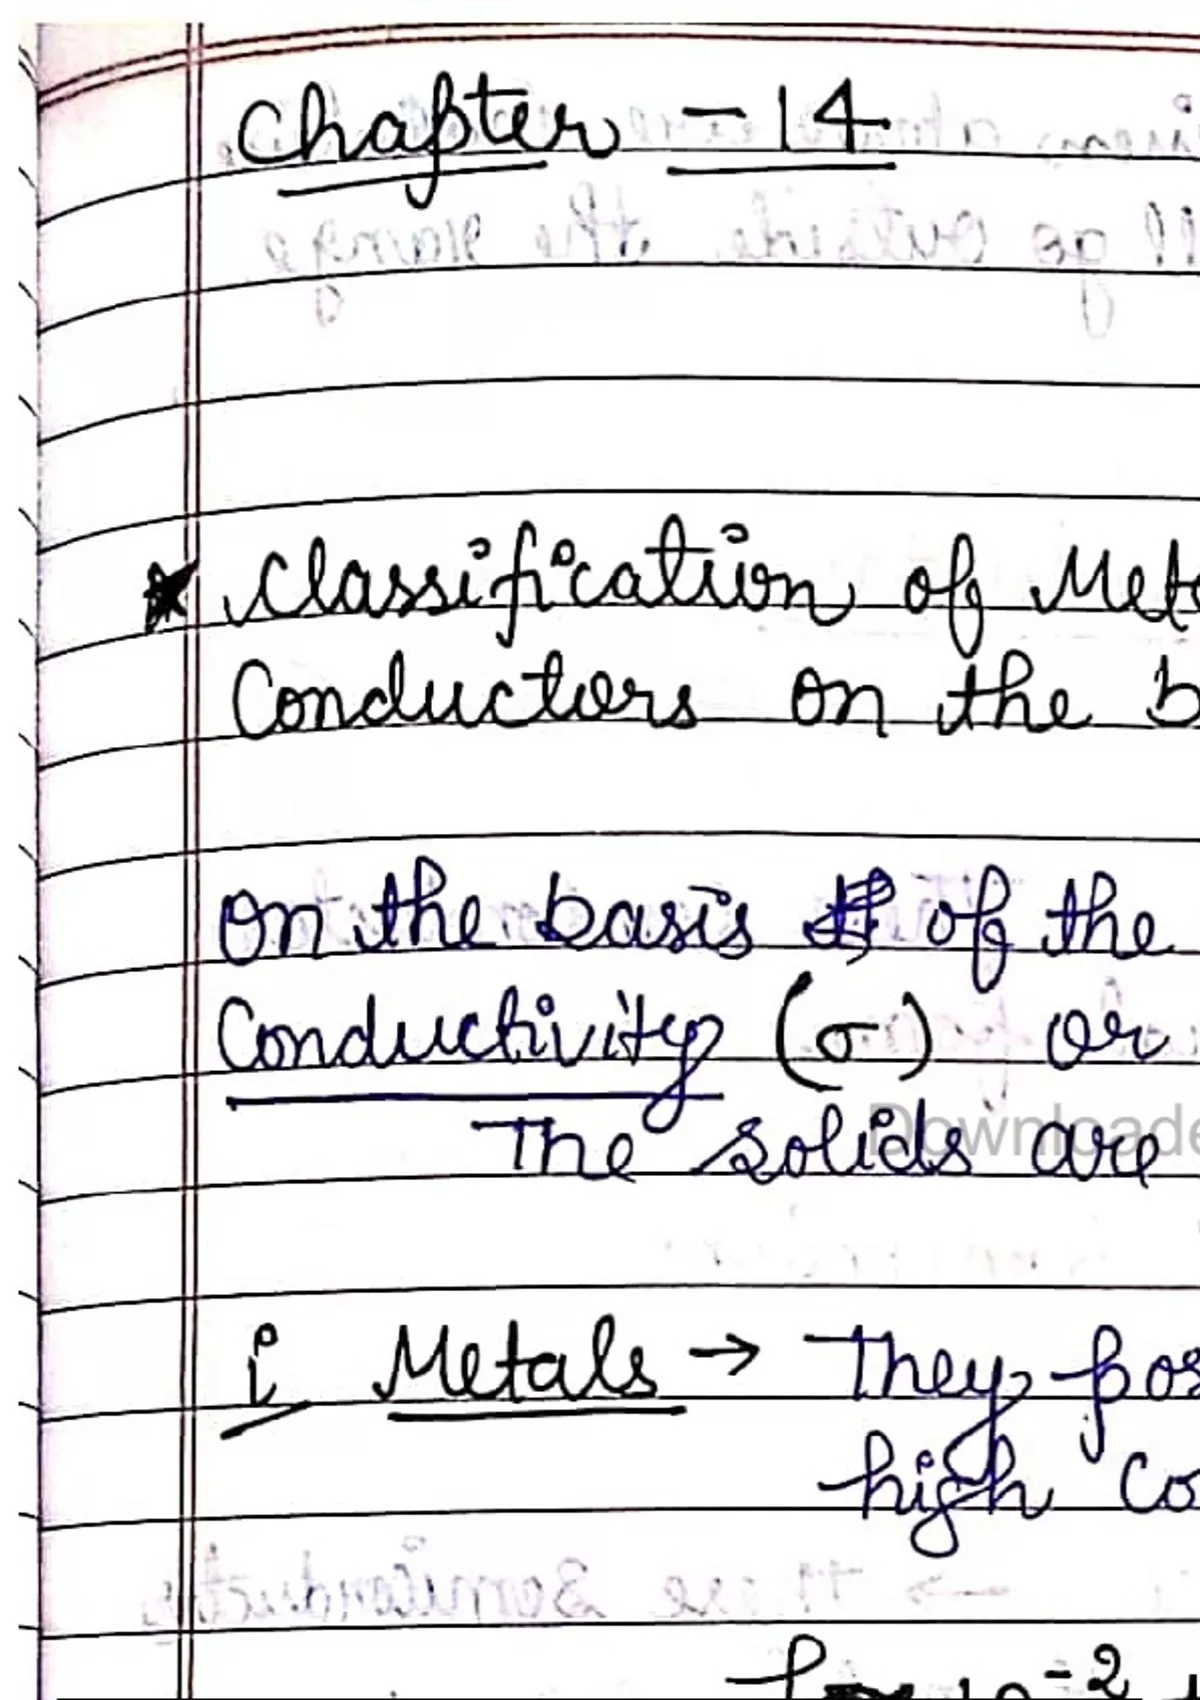 Chapter - 14
★ Classification of Met
Conductors on the b
On the basis of the
Conductivity (σ) or
Downloade
The solids are
i Metals → They pos
high Co